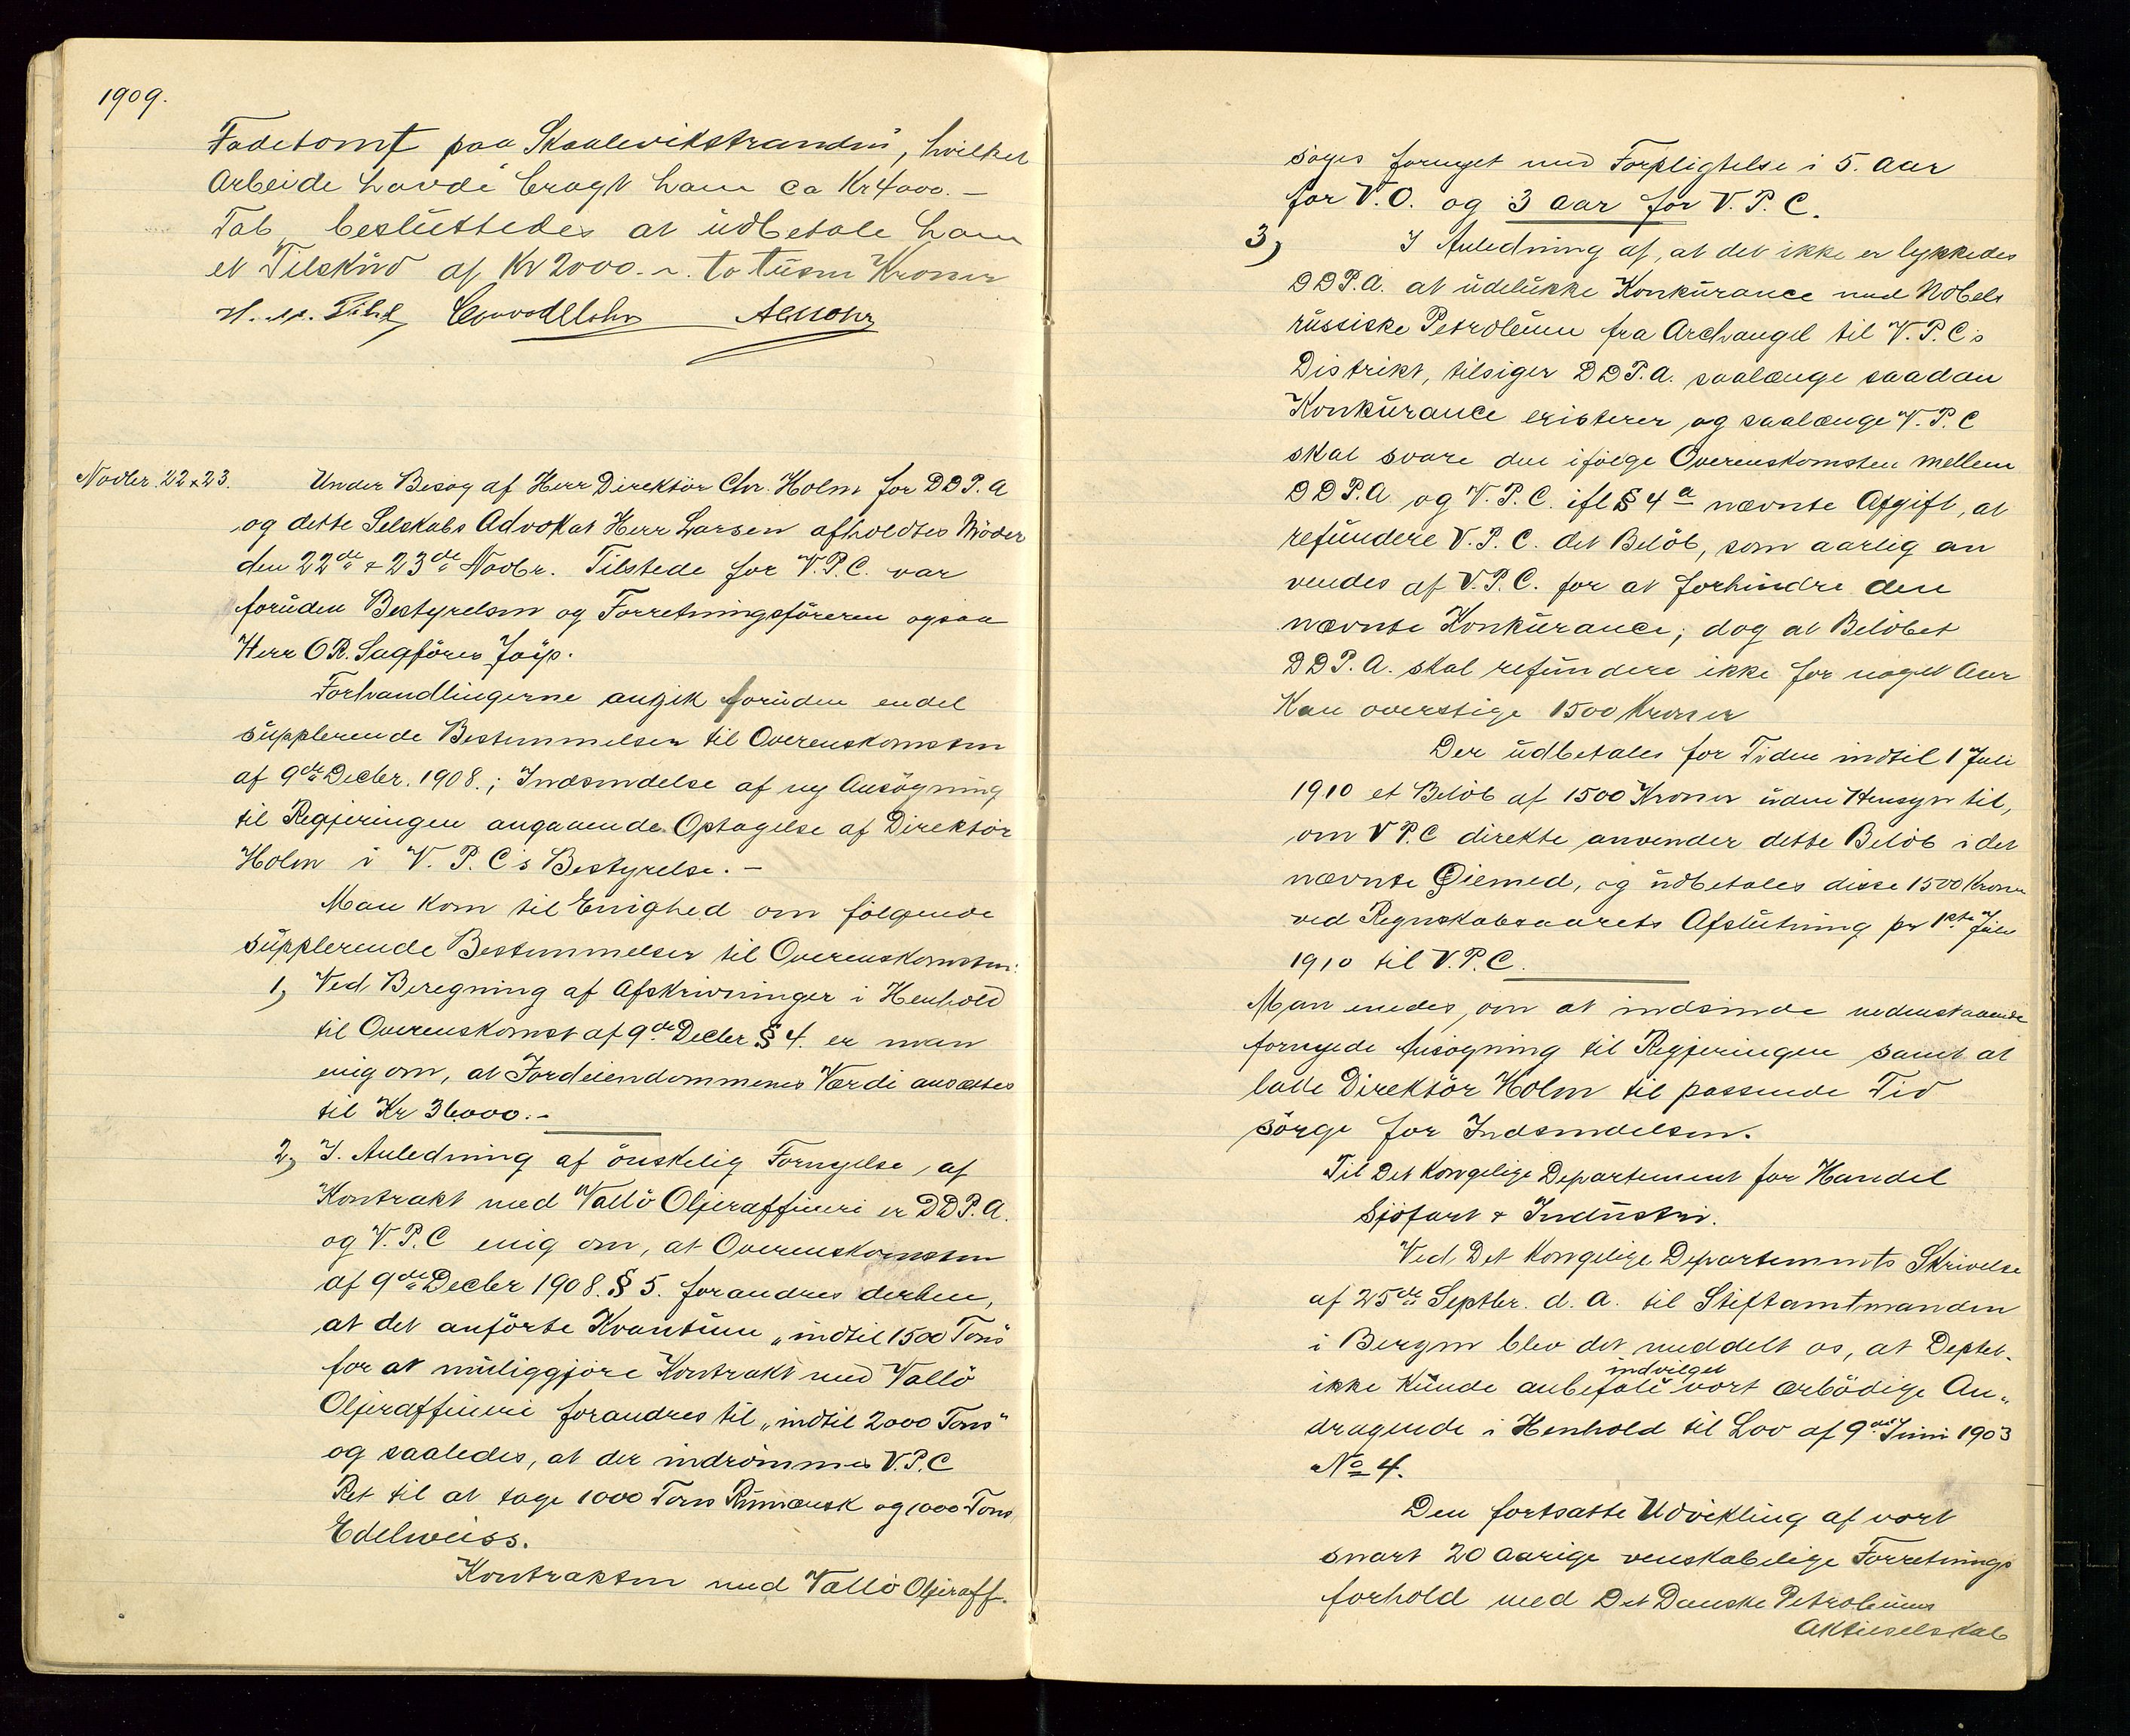 1909.
Fadetomt paa Skaalevikstranden, hvilket
Arbeide havde bragt ham ca Kr 4000.–
Tab, besluttedes at udbetale ham
et Tilskud af Kr 2000.– to tusen Kroner
Novbr. 22 & 23.
Under Besøg af Herr Direktör Chr. Holm for DDP.A
og dette Selskabs Advokat Herr Larsen afholdtes Möder
den 22de & 23de Novbr. Tilstede for V.P.C. var
foruden Bestyrelsen og Forretningsföreren ogsaa
Herr O.R. Sagförer
Forhandlingerne angik foruden endel
supplerende Bestemmelser til Overenskomsten
af 9de Decbr. 1908.; Indsendelse af ny Ansögning
til Regjeringen angaaende Optagelse af Direktör
Holm i V. P. C's Bestyrelse. –
Man kom til Enighed om fölgende
supplerende Bestemmelser til Overenskomsten:
1, Ved Beregning af Afskrivninger i Henhold
til Overenskomst af 9de Decbr § 4. er man
enig om, at Jordeiendommenes Værdi ansættes
til Kr 36000.–
2, I. Anledning af önskelig Fornyelse af
Kontrakt med Vallö Oljeraffineri er DDP.A.
og V.P.C enig om, at Overenskomsten
af 9de Decbr 1908. § 5. forandres derhen,
at det anförte Kvantum „indtil 1500 Tons"
for at muliggjöre Kontrakt med Vallö
Oljeraffineri forandres til „indtil 2000 Tons"
og saaledes, at der indrömmes V.P.C
Ret til at tage 1000 Tons Rumænsk og 1000 Tons
Edelweiss.
Kontrakten med Vallö Oljeraff.
söges fornyet med Forpligtelse i 5. Aar
for V.O. og 3 aar for V.P.C.
3, I Anledning af, at det ikke er lykkedes
DDP.A. at udelukke Konkurance med Nobels
russiske Petroleum fra Archangel til V.P.C's
Distrikt, tilsiger DDP.A. saalænge saadan
Konkurance existerer og saalænge V.P.C
skal svare den ifölge Overenskomsten mellem
DDP.A og V.P.C. ifl § 4 a nævnte Afgift, at
refundere V.P.C. det Belöb, som aarlig an
vendes af V.P.C. for at forhindre den
nævnte Konkurance; dog at Belöbet
DDP.A. skal refundere ikke for noget Aar
Kan overstige 1500 Kroner
Der udbetales for Tiden indtil 1 Juli
1910 et Belöb af 1500 Kroner uden Hensyn til,
om V.P.C direkte anvender dette Belöb i det
nævnte Øiemed, og udbetales disse 1500 Kroner
ved Regnskabsaarets Afslutning pr 1ste Juli
1910 til V.P.C.
Man enedes, om at indsende nedenstaaende
fornyede Ansögning til Regjeringen samt at
lade Direktör Holm til passende Tid
sörge for Indsendelsen.
Til Det Kongelige Departement for Handel
Sjöfart & Industri.
Ved Det Kongelige Departements Skrivelse
af 25de Septbr. d. A. til Stiftamtmanden
i Bergen blev det meddelt os, at Deptet.
indvilget
ikke kunde anbefale vort ærbödige An„
dragende i Henhold til Lov af 9de Juni 1903
No 4.
Den fortsatte Udvikling af vort
snart 20 aarige venskabelige Forretnings
forhold med Det Danske Petroleums
Aktieselskab